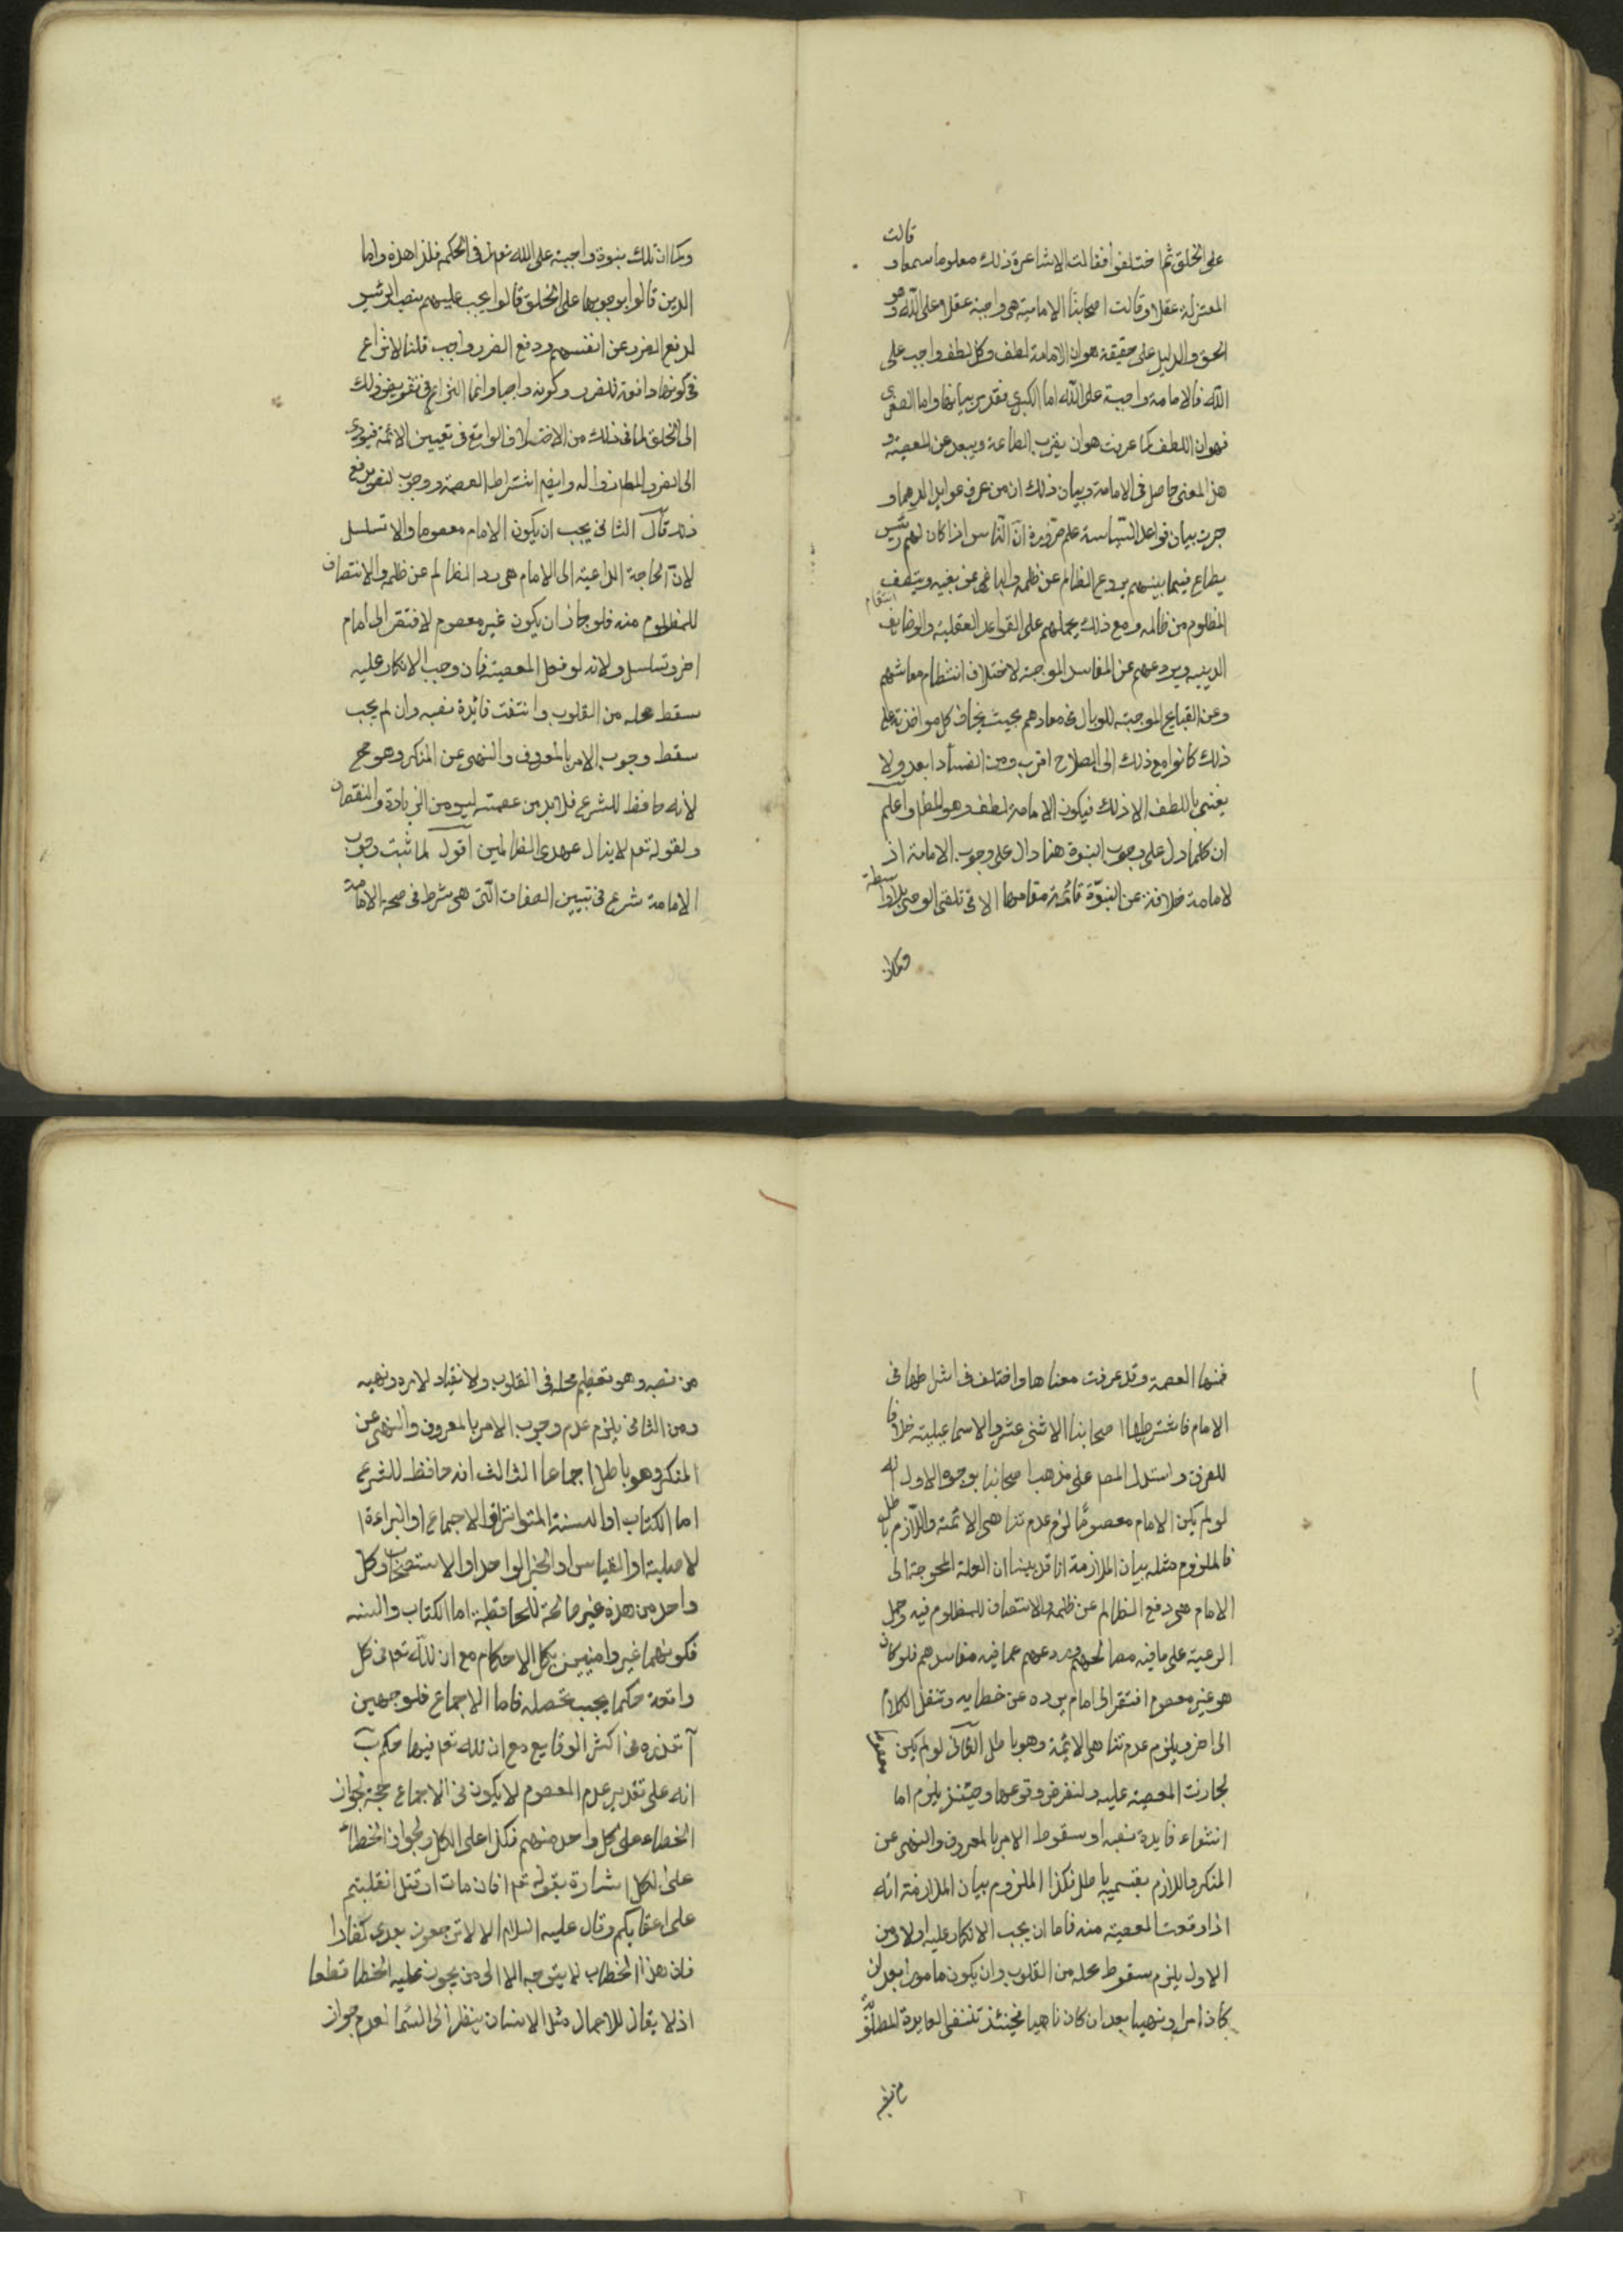 قالت
على الخلق ثم اختلفوا فقالت الاشاعرة ذلك معلوم سمعا و
المعتزلة عقلا وقالت اصحابنا الامامية هى واجبة عقلا على الله وهو
الحق والدليل على حقيقته هو ان الامامة لطف وكل لطف واجب على
الله فالامامة واجبة على الله اما الكبرى فقد مر بيانها واما الصغرى
فهو ان اللطف كما عرفت هو ان يقرب الطاعة ويبعد عن المعصية و
هذا المعنى حاصل فى الامامة وبيان ذلك ان من عرف عوايد الدهماو
جرت بيان قواعد السياسة علم ضرورة ان الناس اذا كان لهم رئيس
يطاع فيما بينهم يردع الظالم عن ظلمه والباغى عن بغيه وينتصف
انتقام
المظلوم من ظالمه ومع ذلك يحملهم على القواعد العقلية والوضايف
الدينيه ويردعهم عن المفاسد الموجبة لاختلاف انتظام معاشهم
وعن القبايح الموجبة للوبال فى معادهم بحيث يخاف كل مواخذته على
ذلك كانوا مع ذلك الى الصلاح اقرب ومن الفساد ابعد ولا
يعنى باللطف الا ذلك فيكون الامامة لطف وهو المطلوا علم
ان كلما دل على وجوب النبوة هنا دال على وجوب الامامة اذ
لامامة خلافة عن النبوة قائمة مقامها الا فى تلقى الوحى بلاواسطة
وكما ان
وكما ان تلك بنبوة واجبة على الله تعالى فى الحكمة فلذا هذه واما
الدين قالوا بوجوبها على الخلق قالوا يجب عليهم بنصب الرئيس
لدفع الضرر عن انفسهم ودفع الضرر واجب قلنا لا نزاع
فى كونها دافعة للضرر وكونه واجبا وانما النزاع فى تفويض ذلك
الى الخلق لما فى ذلك من الاختلاف الواقع فى تعيين الائمة فيودى
الى الضرر المطلوب زواله وايضا اشتراط العصمة ووجوب لنفويرفع
ذلك قال الثانى يجب ان يكون الامام معصوما والا تسلسل
لان الحاجة الداعية الى الامام هى رد الظالم عن ظلمه والانتصاف
للمظلوم منه فلو جاز ان يكون غير معصوم لافتقر الى امام
اخر وتسلسل ولانه لو فعل المعصية فان وجب الانكار عليه
سقط محله من القلوب وانتفت فائدة نصبه وان لم يجب
سقط وجوب الامر بالمعروف والنهى عن المنكر وهو مح
لانه حافظ للشرع فلا بد من عصمته ليومن الزيادة والنقصان
ولقوله تعم لا ينال عهدى الظالمين اقول لما ثبت وجوب
الامامة شرع فى تبيين الصفات التى هى شرط فى صحة الامامة
فمنها العصمة وقد عرفت معناها واختلف فى اشتراطها فى
الامام فاشترطها اصحابنا الاثنى عشر والاسماعيلية خلافا
للفرق واستدل المصم على مذهب اصحابنا بوجوه الاول انه
لو لم يكن الامام معصوما لزم عدم تناهى الائمة واللازم باطل
فالملزوم مثله بيان الملازمة انا قد بينا ان العلة المحوجة الى
الامام هى دفع الظالم عن ظلمه والانتصاف للمظلوم فيه وحمل
الرعية على ما فيه مصالحهم وردعهم عما فيه مفاسدهم فلو كان
هو غير معصوم افتقر الى امام يرده عن خطايه وننقل الكلام
الى اخر ويلزم عدم تناهى الائمة وهو باطل الثانى لو لم يكن معصوما
لجازت المعصية عليه ولنفرض وقوعها وحينئذ يلزم اما
انتفاء فايدة نصبه او سقوط الامر بالمعروف والنهى عن
المنكر واللازم بقسميه باطل فكذا الملزوم بيان الملازمة انه
اذا وقعت المعصية منه فاما ان يجب الانكار عليه اولا ومن
الاول يلزم سقوط محله من القلوب وان يكون مامورا بعد ان
كان امرا ونهيا بعد ان كان ناهيا فحينئذ تنتفى الفايدة المطلوبة
من نصبه
من نصبه وهو تعظيم محله فى القلوب ولانقياد لامره ونهيه
ومن الثانى يلزم عدم وجوب الامر بالمعروف والنهى عن
المنكر وهو باطل اجماعا الثالث انه حافظ للشرع
اما الكتاب او السنة المتواترة او الاجماع او البراءة ا
لاصلية او القياس او الخبر الواحد او الاستصحاب وكل
واحد من هذه غير صالحة للمحافظة اما الكتاب والسنه
فكونهما غير وافيين بكل الاحكام مع ان لله تعم فى كل
واقعة حكما يجب تحصله فاما الاجماع فلوجهين
آ تعذره فى اكثر الوقايع مع ان لله تعم فيها حكم ب
انه على تقدير عدم المعصوم لا يكون فى الاجماع حجة لجواز
الخطاء على كل واحد منهم فكذا على الكل ولجواز الخطاء
على الكل اشارة بقوله تعم افان مات او قتل انقلبتم
على اعقابكم وقال عليه السلام الا لا ترجعون بعدى كفارا
فان هذا الخطاب لا يتوجه الا الى من يجوز عليه الخطا قطعا
اذ لا يقال للاجمال مثل الانسان ينظر الى السما لعدم جواز